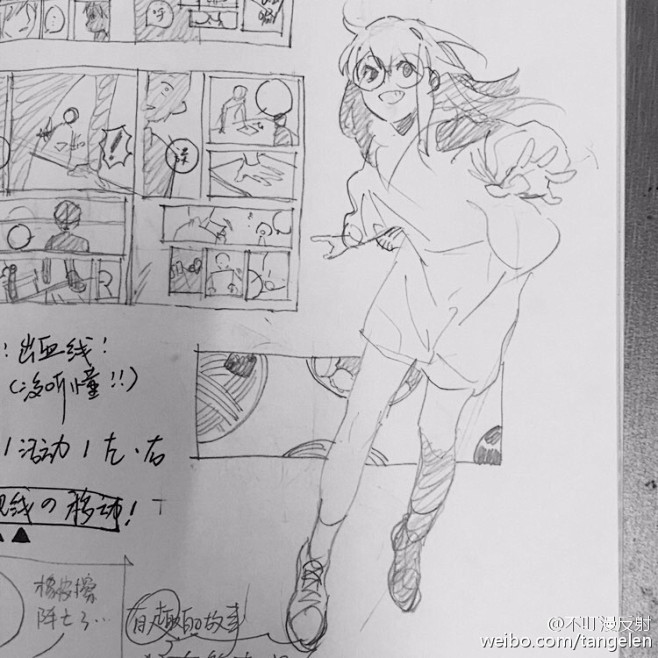 !
出血线!
(没听懂!!)
活动 / 左、右
线の移动!
橡皮擦
阵亡了…
有趣的故事
@不叮漫反射
weibo.com/tangelen